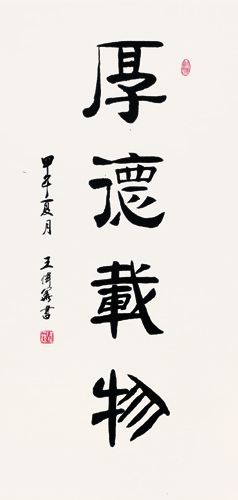 厚德載物
甲午夏月 王偉
書